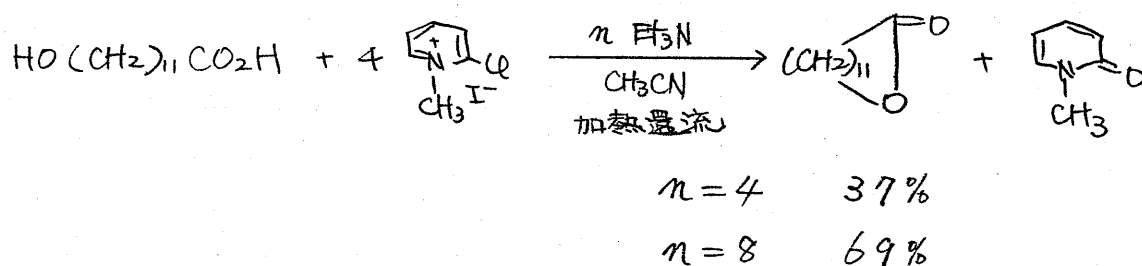 HO(CH2)11CO2H + 4 N + Cl CH3 I- n Et3N (CH2)11 O O + N O CH3
CH3CN
加熱還流
n=4 37%
n=8 69%